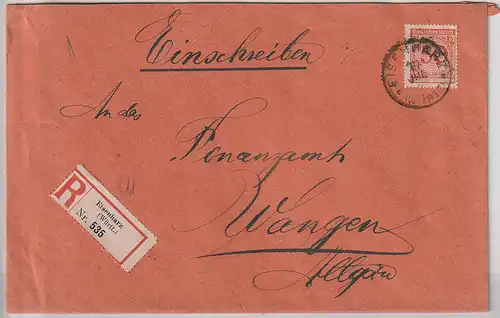 Einschreiben
An das
Finanzamt
Wangen
Allgäu
R
Eisenharz
(Württ.)
Nr. 535